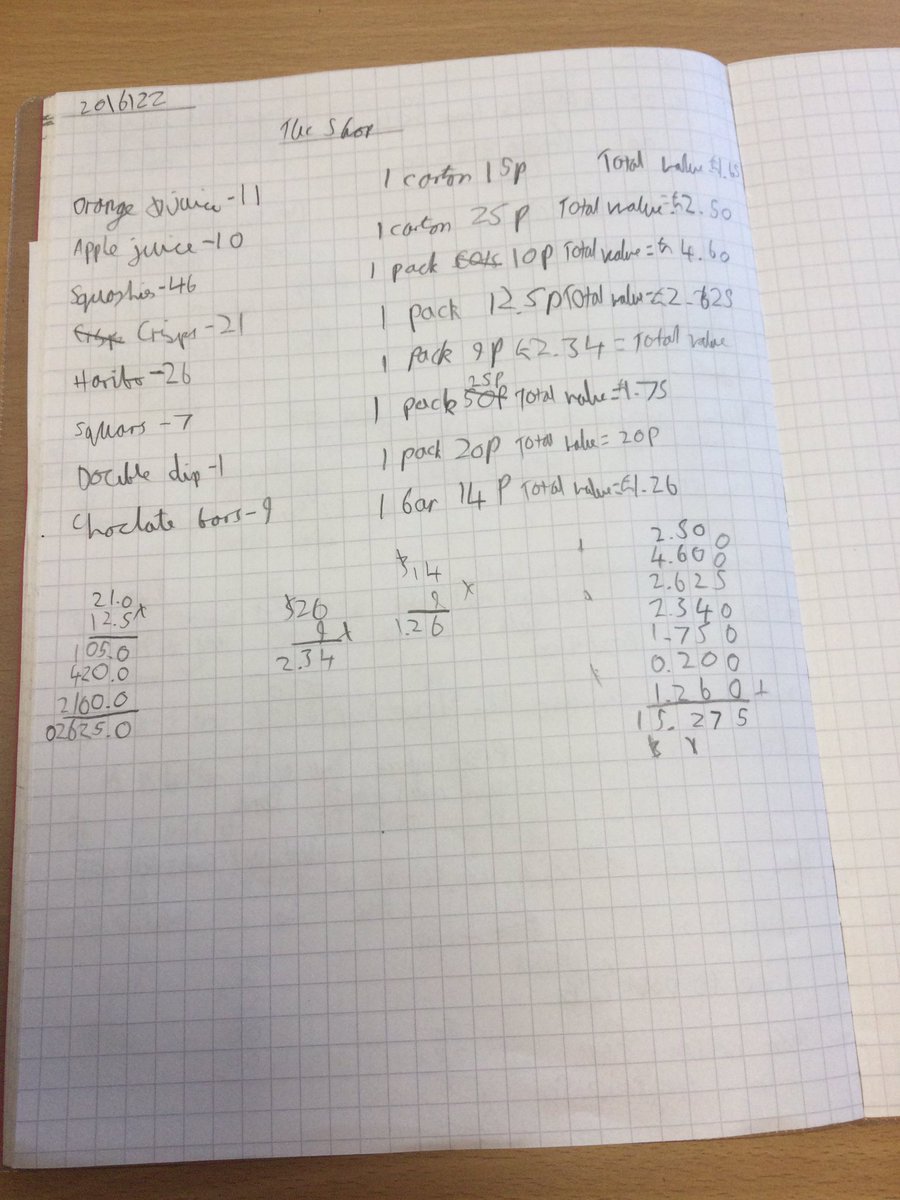 20/6/22
The Shop
Orange juice-11 1 carton 15p Total value £1.65
Apple juice-10 1 carton 25p Total value=£2.50
Squashies-46 1 pack 10p Total value=£4.60
Crisps-21 1 pack 12.5p Total value=£2.625
Haribo-26 1 pack 9p £2.34=Total value
Squars-7 1 pack 25p Total value=£1.75
Double dip-1 1 pack 20p Total value=20p
Choclate bars-9 1 bar 14p Total value=£1.26
21.0
12.5x
105.0
420.0
2100.0
02625.0
26
9x
2.34
14
9 x
1.26
2.500
4.600
2.625
2.340
1.750
0.200
1.260+
15.275